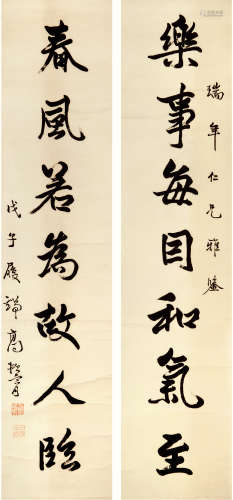 瑞年仁兄雅鑒
樂事每因和氣至
春風若為故人臨
戊子履端高振霄